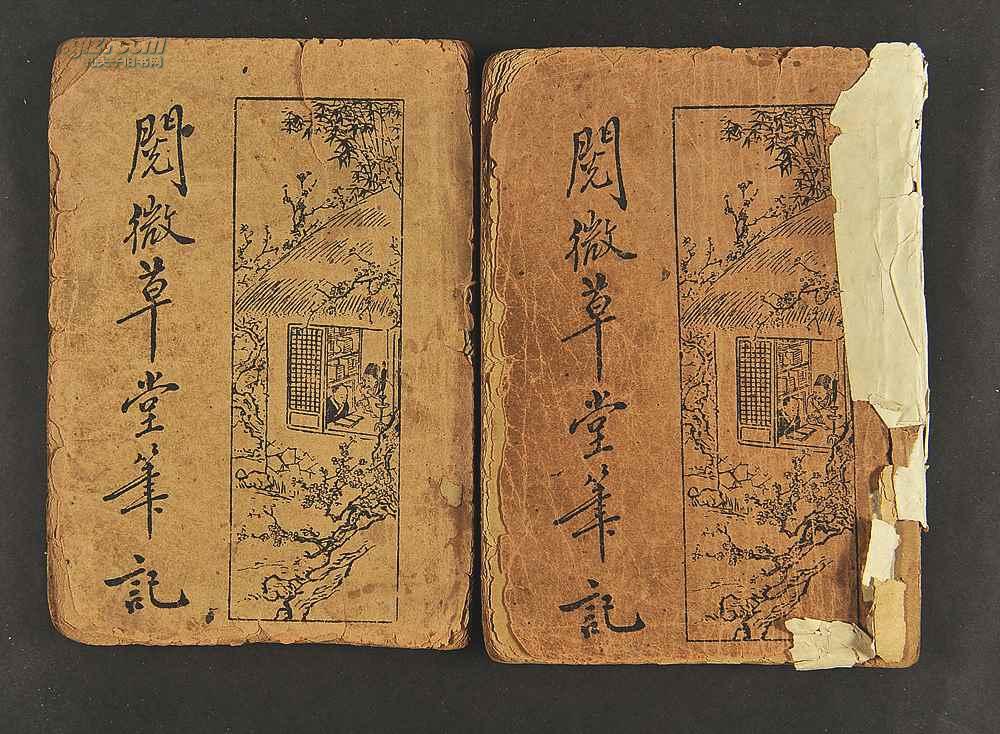 閱微草堂筆記
閱微草堂筆記
孔夫子旧书网